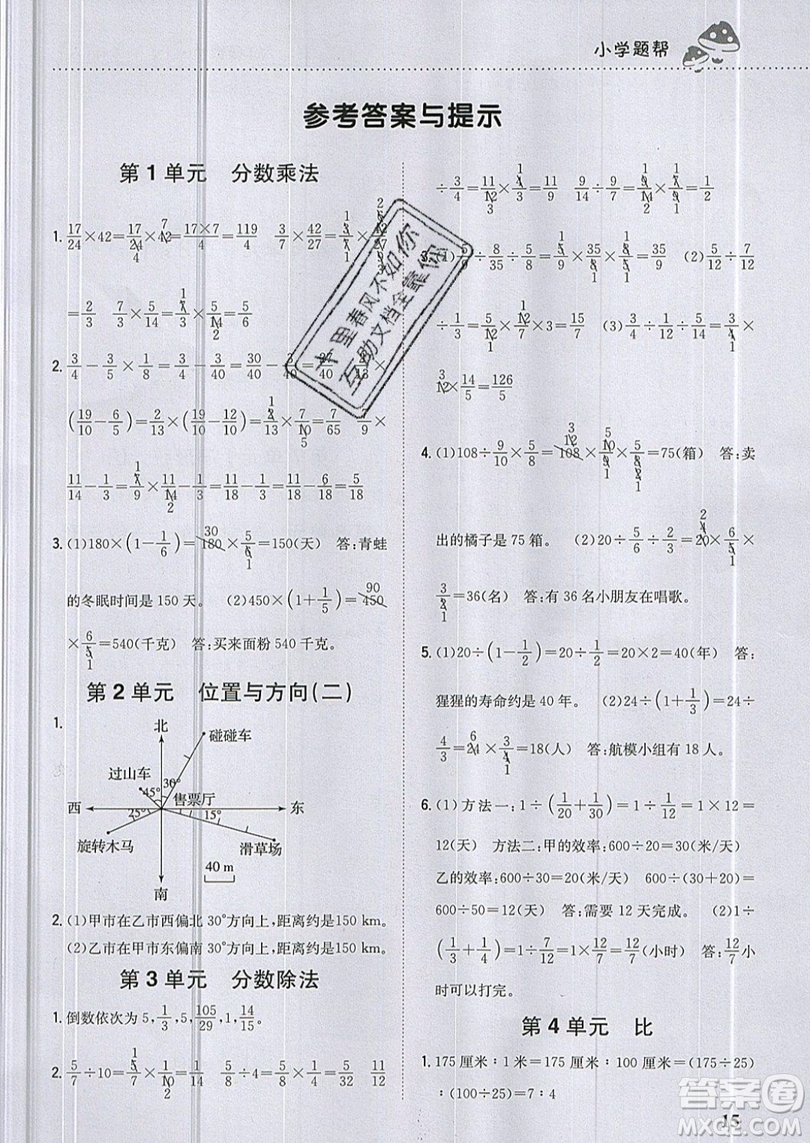 小学题帮
参考答案与提示
第1单元 分数乘法
1. 17/24×42=17/24×42=17×7/4=119/4 3/7×42/27=3/7×42/27
=2/3 3/4×5/14×14/9=3/4×5/14×14/9=5/6
2. 3/4-3/5×1/8=3/4-3/40=30/40-3/40=27/40
(19/10-6/5)×2/13=(19/10-12/10)×2/13=7/10×2/13=7/65 7/9×
11/14-1/3=7/9×11/14-1/3=11/18-1/3=11/18-6/18=5/18
3. (1)180×(1-1/6)=180×5/6=150(天) 答:青蛙
的冬眠时间是150天。 (2)450×(1+1/5)=450
×6/5=540(千克) 答:买来面粉540千克。
第2单元 位置与方向(二)
1.
北
碰碰车
过山车
45° 30°
售票厅
西
东
25° 15°
旋转木马
滑草场
40 m
南
2. (1)甲市在乙市西偏北30°方向上,距离约是150 km。
(2)乙市在甲市东偏南30°方向上,距离约是150 km。
第3单元 分数除法
1. 倒数依次为5,1/3,5,105/29,1,14/15。
2. 5/7÷10=5/7×1/10=1/14 8/5÷4=8/5×1/4=2/5 11/32
÷3/4=11/12×3/4=1/2 9/14÷9/7=9/14×7/9=1/2
3. (1)5/9÷8/35÷5/9=5/9×35/8×9/5=35/8
÷1/3=5/12×3/5×3/1=3/4 (3)6/5÷1/12÷5/14=6/5×
12×14/5=126/5
4. (1)108÷9/10×5/8=108×10/9×5/8=75(箱) 答:卖
出的橘子是75箱。 (2)20÷5/6÷2/3=20×6/5×
3/2=36(名) 答:有36名小朋友在唱歌。
5. (1)20÷(1-1/2)=20÷1/2=20×2=40(年) 答:
猩猩的寿命约是40年。 (2)24÷(1+1/3)=24÷
4/3=24×3/4=18(人) 答:航模小组有18人。
6. (1)方法一:1÷(1/20+1/30)=1÷1/12=1×12=
12(天) 方法二:甲的效率:600÷20=30(米/天)
乙的效率:600÷30=20(米/天) 600÷(30+20)=
600÷50=12(天) 答:需要12天完成。 (2)1÷
(1/3+1/4)=1÷7/12=1×12/7=12/7(小时) 答:12/7小
时可以打完。
第4单元 比
1. 175厘米:1米=175厘米:100厘米=(175÷25)
:(100÷25)=7:4
十里春风不如你
互助文档全靠你
答案圈
MXQE.COM
15